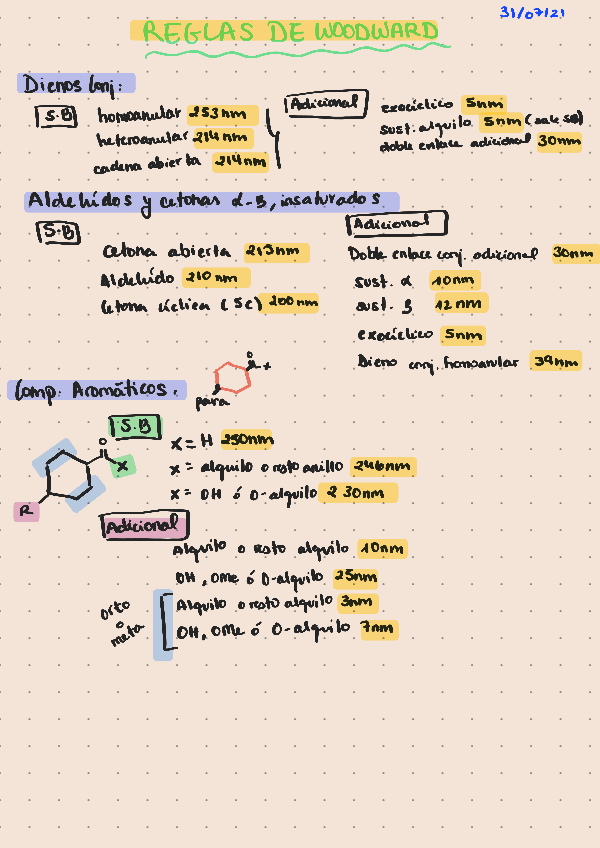 31/07/21
REGLAS DE WOODWARD
Dienos Conj:
S.B
homoanular 253nm
heteroanular 214nm
cadena abierta 214nm
Adicional
exocíclico 5nm
sust. alquilo 5nm (sale SB)
doble enlace adicional 30nm
Aldehídos y cetonas α-B, insaturados
S.B
Cetona abierta 215nm
Aldehído 210nm
Cetona cíclica (5c) 200nm
Adicional
Doble enlace conj. adicional 30nm
sust. α 10nm
sust. β 12nm
exocíclico 5nm
Dieno conj. homoanular 39nm
Comp. Aromáticos:
O
x
para
S.B
O
X
R
x = H 250nm
x = alquilo o resto anillo 246nm
x = OH ó O-alquilo 230nm
Adicional
Alquilo o resto alquilo 10nm
OH, OMe ó O-alquilo 25nm
orto
o
meta
Alquilo o resto alquilo 3nm
OH, OMe ó O-alquilo 7nm